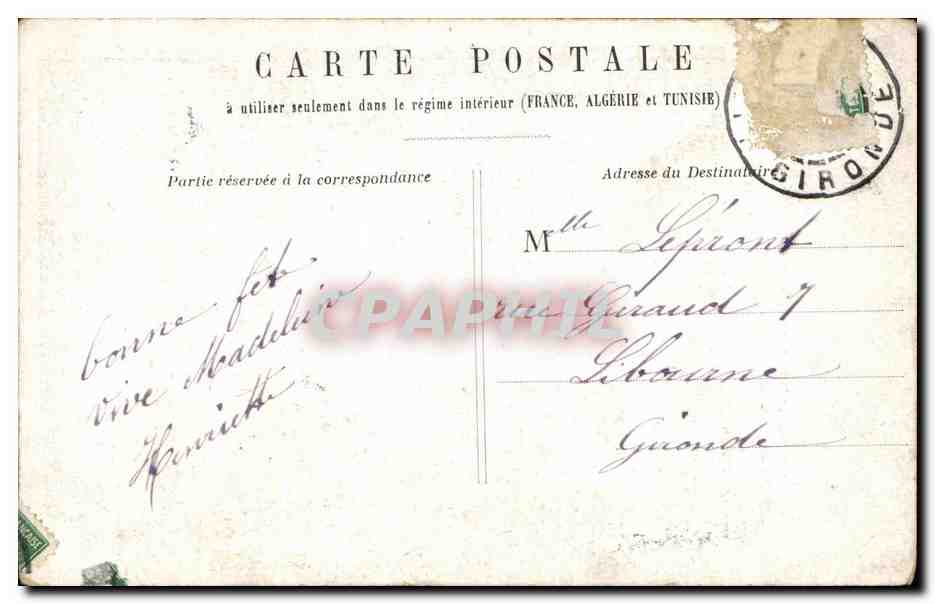 CARTE POSTALE
à utiliser seulement dans le régime intérieur (FRANCE, ALGÉRIE et TUNISIE)
Partie réservée à la correspondance
Adresse du Destinataire
GIRONDE
bonne fet
vive Madelein
Henriette
Mlle Lépront
rue Giraud 7
Libourne
Gironde
CPAPHIL